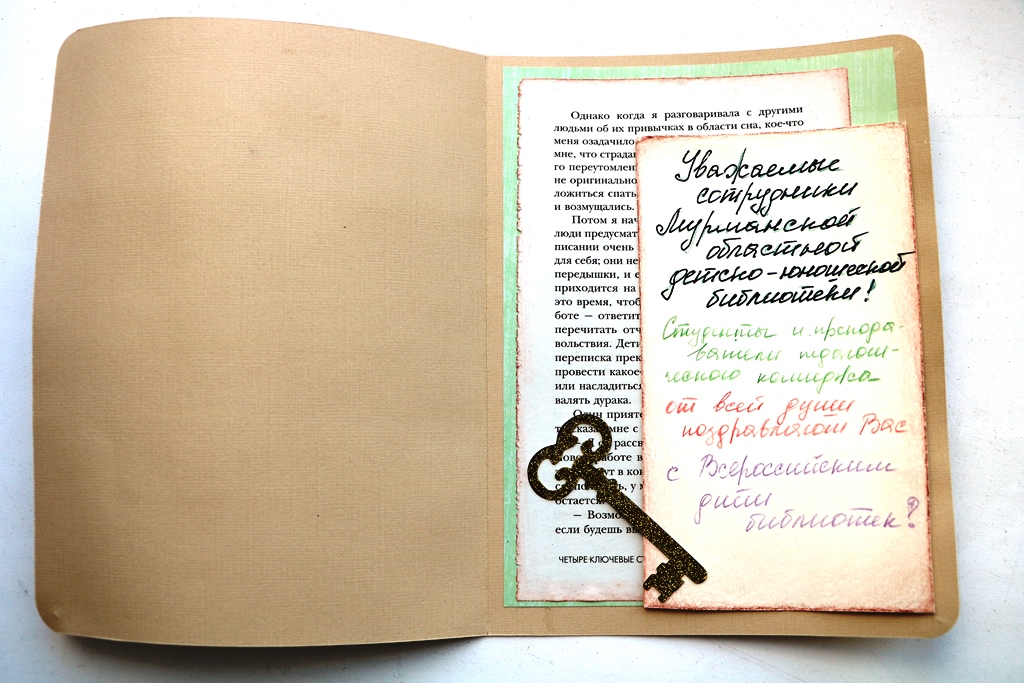 Однако когда я разговаривала с другими
людьми об их привычках в области сна, кое-что
меня озадачило
мне, что страда
го переутомлен
не оригинально
ложиться спать
и возмущались.
Потом я нач
люди предусмат
писании очень
для себя; они не
передышки, и е
приходится на
это время, чтоб
боте — ответит
перечитать отч
вольствия. Дети
переписка прек
провести какое-
или насладиться
валять дурака.
Один прияте
мне с
рассв
работе в
ут в кон
ь, у м
остается
— Возмо
если будешь вы
ЧЕТЫРЕ КЛЮЧЕВЫЕ С
Уважаемые
сотрудники
Мурманской
областной
детско-юношеской
библиотеки!
Студенты и препода-
ватели педагоги-
ческого колледжа
от всей души
поздравляют Вас
с Всероссийским
днём
библиотек!